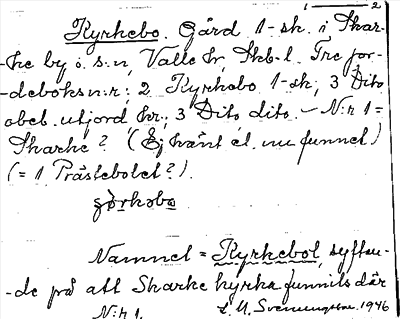 1 — 2
Kyrkebo. Gård 1-sk. i Skar-
-ke by o. s:n, Valle hr, Skb-l. Tre jor-
-deboksn:r: 2 Kyrkebo 1-sk; 3 Dito
obeb. utjord kr; 3 Dito dito. — N:r 1 =
Skarke? (Ej känt el. nu funnet)
(= 1 Prästebolet?).
Namnet = Kyrkebol, syftan-
-de på att Skarke kyrka funnits där
N:r 1.
L. M. Svenungsson 1946